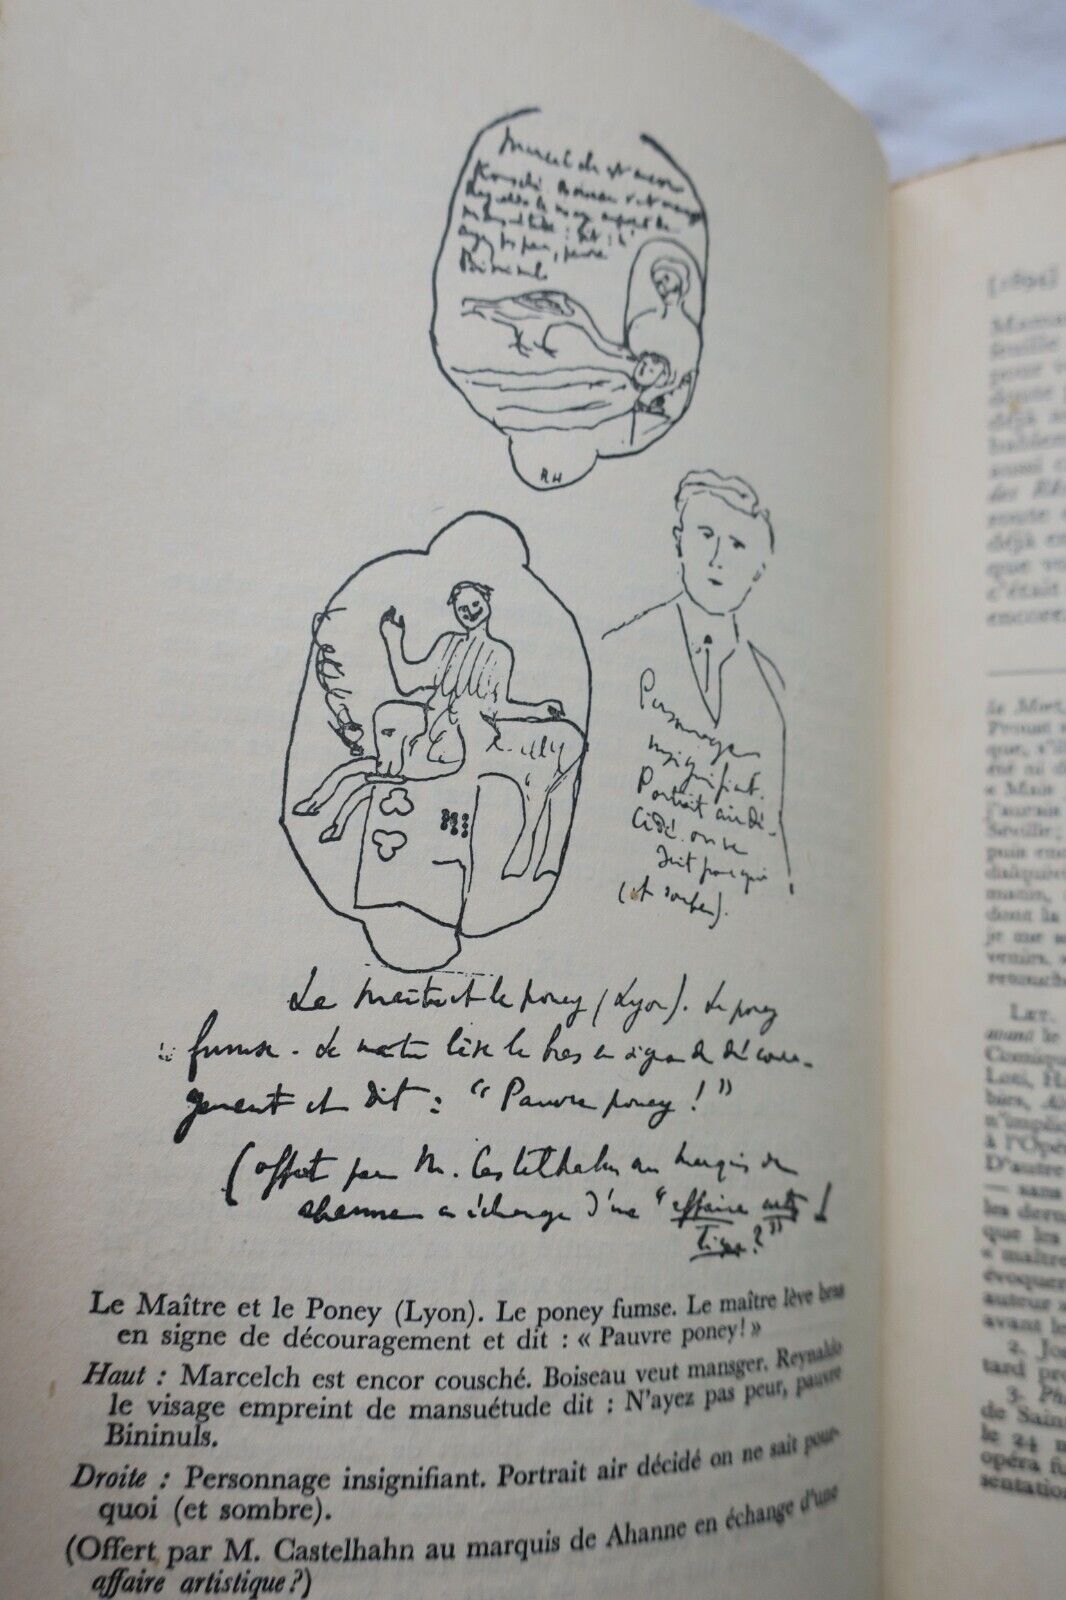 Marcelch est encor
Kousché. Boiseau veut mansg
Reynaldo le visage empreint de
mansuétude : dit : N'
ayez pas peur, pauvre
Bininuls
RH
Personnage
insignifiant.
Portrait air dé-
cidé on ne
sait pourquoi
(et sombre).
Le Maître et le poney (Lyon). Le poney
fumse. Le maître lève le bras en signe de découra-
gement et dit : "Pauvre poney !"
(offert par M. Castelhahn au marquis de
Ahanne en échange d'une "affaire artis
tique ?")
Le Maître et le Poney (Lyon). Le poney fumse. Le maître lève bras
en signe de découragement et dit : « Pauvre poney! »
Haut : Marcelch est encor cousché. Boiseau veut mansger. Reynaldo
le visage empreint de mansuétude dit : N'ayez pas peur, pauvre
Bininuls.
Droite : Personnage insignifiant. Portrait air décidé on ne sait pour-
quoi (et sombre).
(Offert par M. Castelhahn au marquis de Ahanne en échange d'une
affaire artistique?)
[1895]
Mama
feuille
pour v
doute
déjà
balden
aussi c
des Ré
route
déjà en
que ve
c'était
encore.
la Mort,
Proust
que, s'il
été ni d
« Mais
j'aurais
Séville;
puis enc
dalquivi
matin,
dont la
je me s
venirs.
retouche
Let.
avant le
Comique
Loti, H
bårs, Al
n'implic
à l'Opé
D'autre
— sans
les dern
que les
« maître
évoquer
auteur »
avant le
2. Jo
tard pr
3. Ph
de Sain
le 24 m
opéra fu
sentation